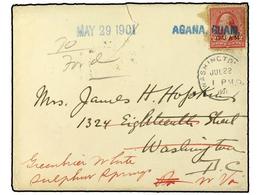 MAY 29 1901 AGANA, GUAM.
GUAM
To
WASHINGTON
JUL 22
1 PM
Mrs. James H. Hopkins
1324 Eighteenth Street
Washington
D.C.
Greenbrier White
Sulphur Springs W. Va